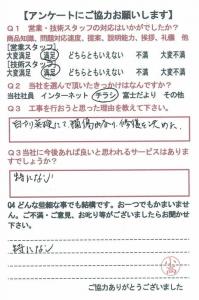 【アンケートにご協力お願いします】
Q1 営業・技術スタッフの対応はいかがでしたか?
商品知識、問題対応速度、提案、説明能力、挨拶、礼儀 他
[営業スタッフ]
大変満足 満足 どちらともいえない 不満 大変不満
[技術スタッフ]
大変満足 満足 どちらともいえない 不満 大変不満
Q2 当社を選んで頂いたきっかけはなんですか?
当社社員 インターネット チラシ 富士だより その他
Q3 工事を行おうと思った理由を教えて下さい。
雨もり 修理を
Q3 当社に今後あれば良いと思われるサービスはあります
でしょうか?
特になし
Q4 どんな些細な事でも結構です。お一つでもかまいませ
ん。ご不満・ご意見、お叱り等がございましたらお聞かせ
下さい。
特になし
ご協力ありがとうございました